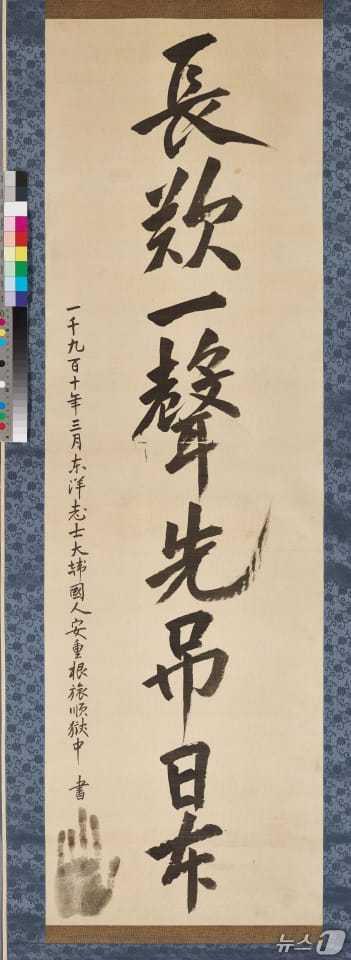 長歎一聲先吊日本
一千九百十年 三月 東洋志士大韓國人安重根旅順獄中 書
뉴스1